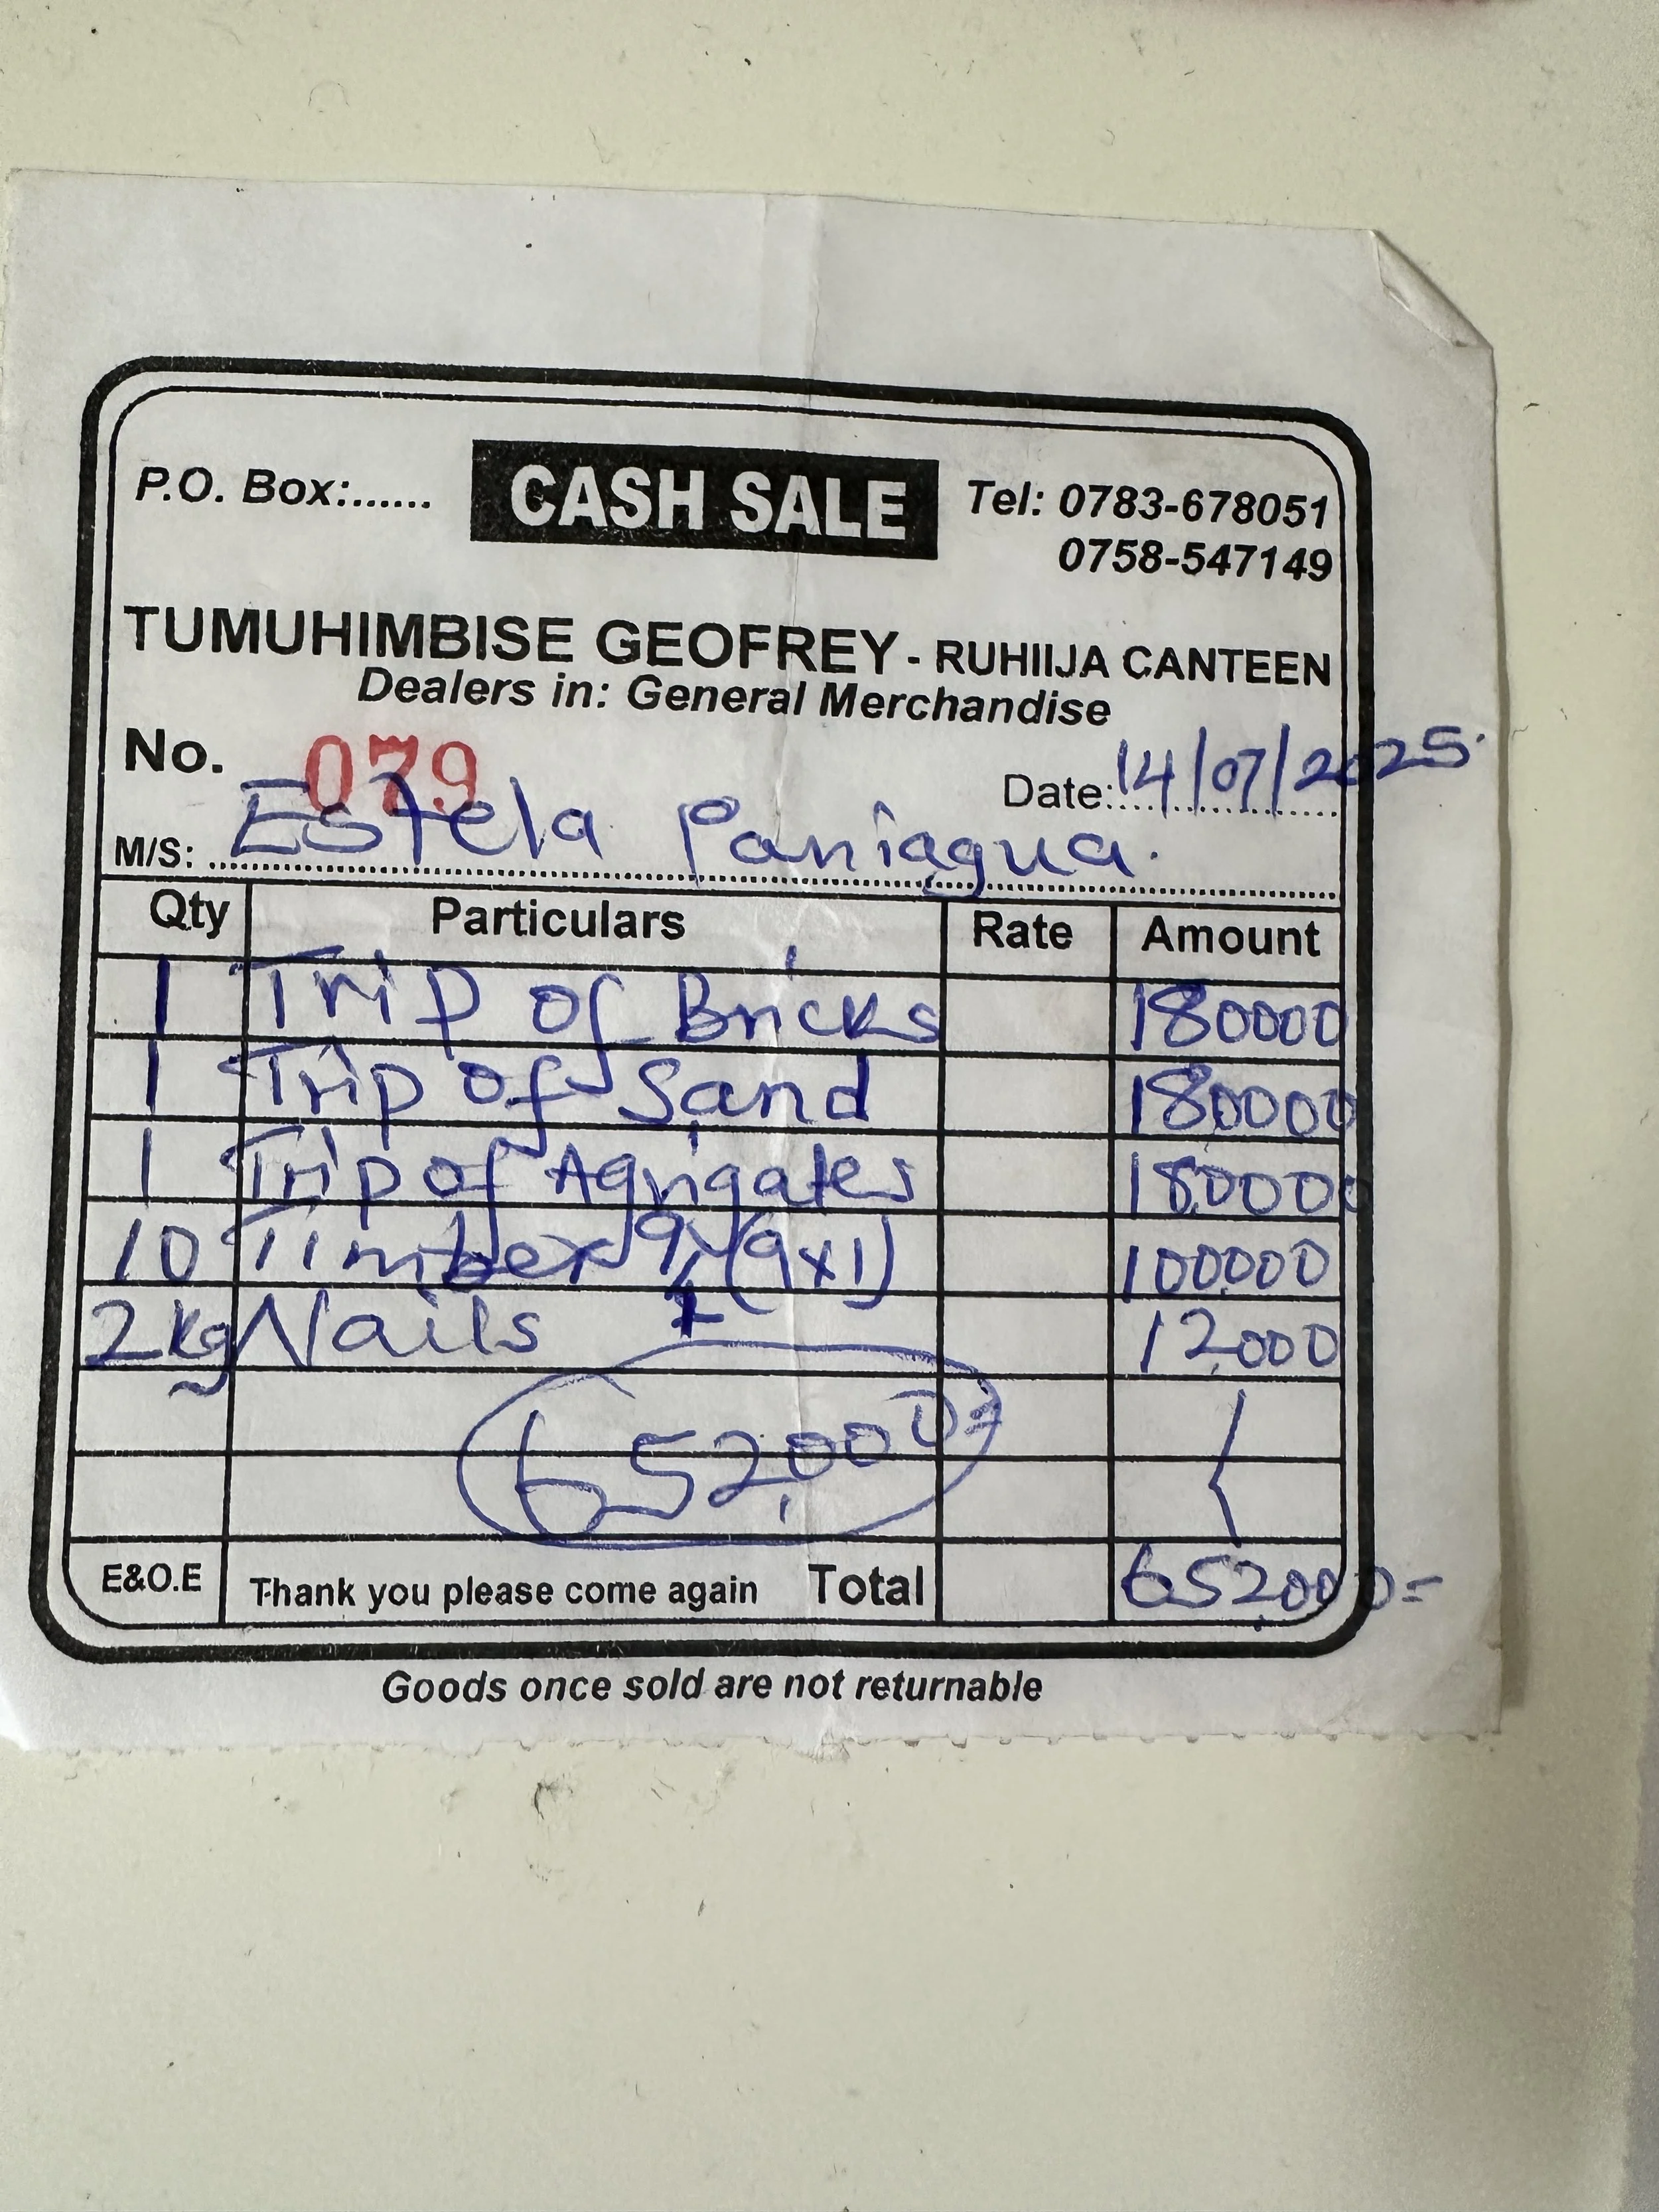 P.O. Box:...... CASH SALE Tel: 0783-678051
0758-547149
TUMUHIMBISE GEOFREY - RUHIIJA CANTEEN
Dealers in: General Merchandise
No. 079 Date: 14/07/2025
M/S: Estela Paniagua.
Qty Particulars Rate Amount
1 Trip of Bricks 180000
1 Trip of Sand 180,000
1 Trip of Agrigates 180000
10 Timber (9x1) 100,000
2kg Nails 12,000
652,000=
E&O.E Thank you please come again Total 652,000=
Goods once sold are not returnable